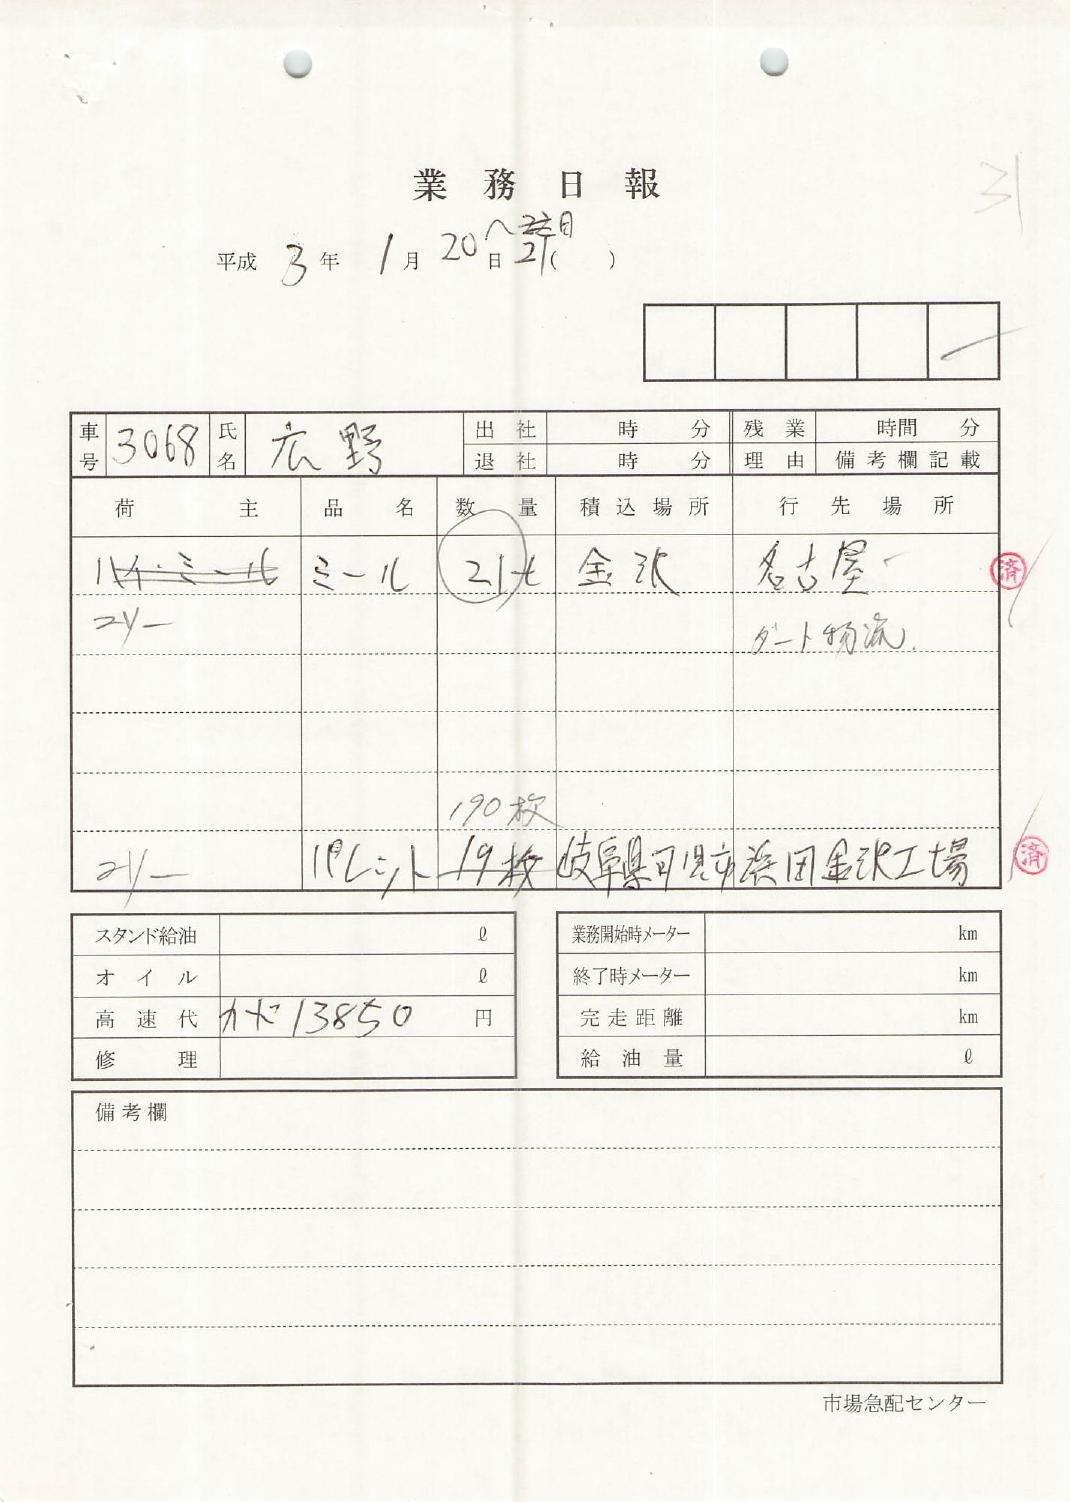 業務日報
31
平成 3年 1月 20日 ～ 21日 ( )
車号 3068 氏名 広野 出社 時 分 残業 時間 分
退社 時 分 理由 備考欄記載
荷主 品名 数量 積込場所 行先場所
ハイ・ミール ミール 21t 金沢 名古屋 済
コリー ダート物流
190枚
コリー パレット 19枚 岐阜県可児市 浜田金沢工場 済
スタンド給油 ℓ 業務開始時メーター km
オイル ℓ 終了時メーター km
高速代 カード13850 円 完走距離 km
修理 給油量 ℓ
備考欄
市場急配センター